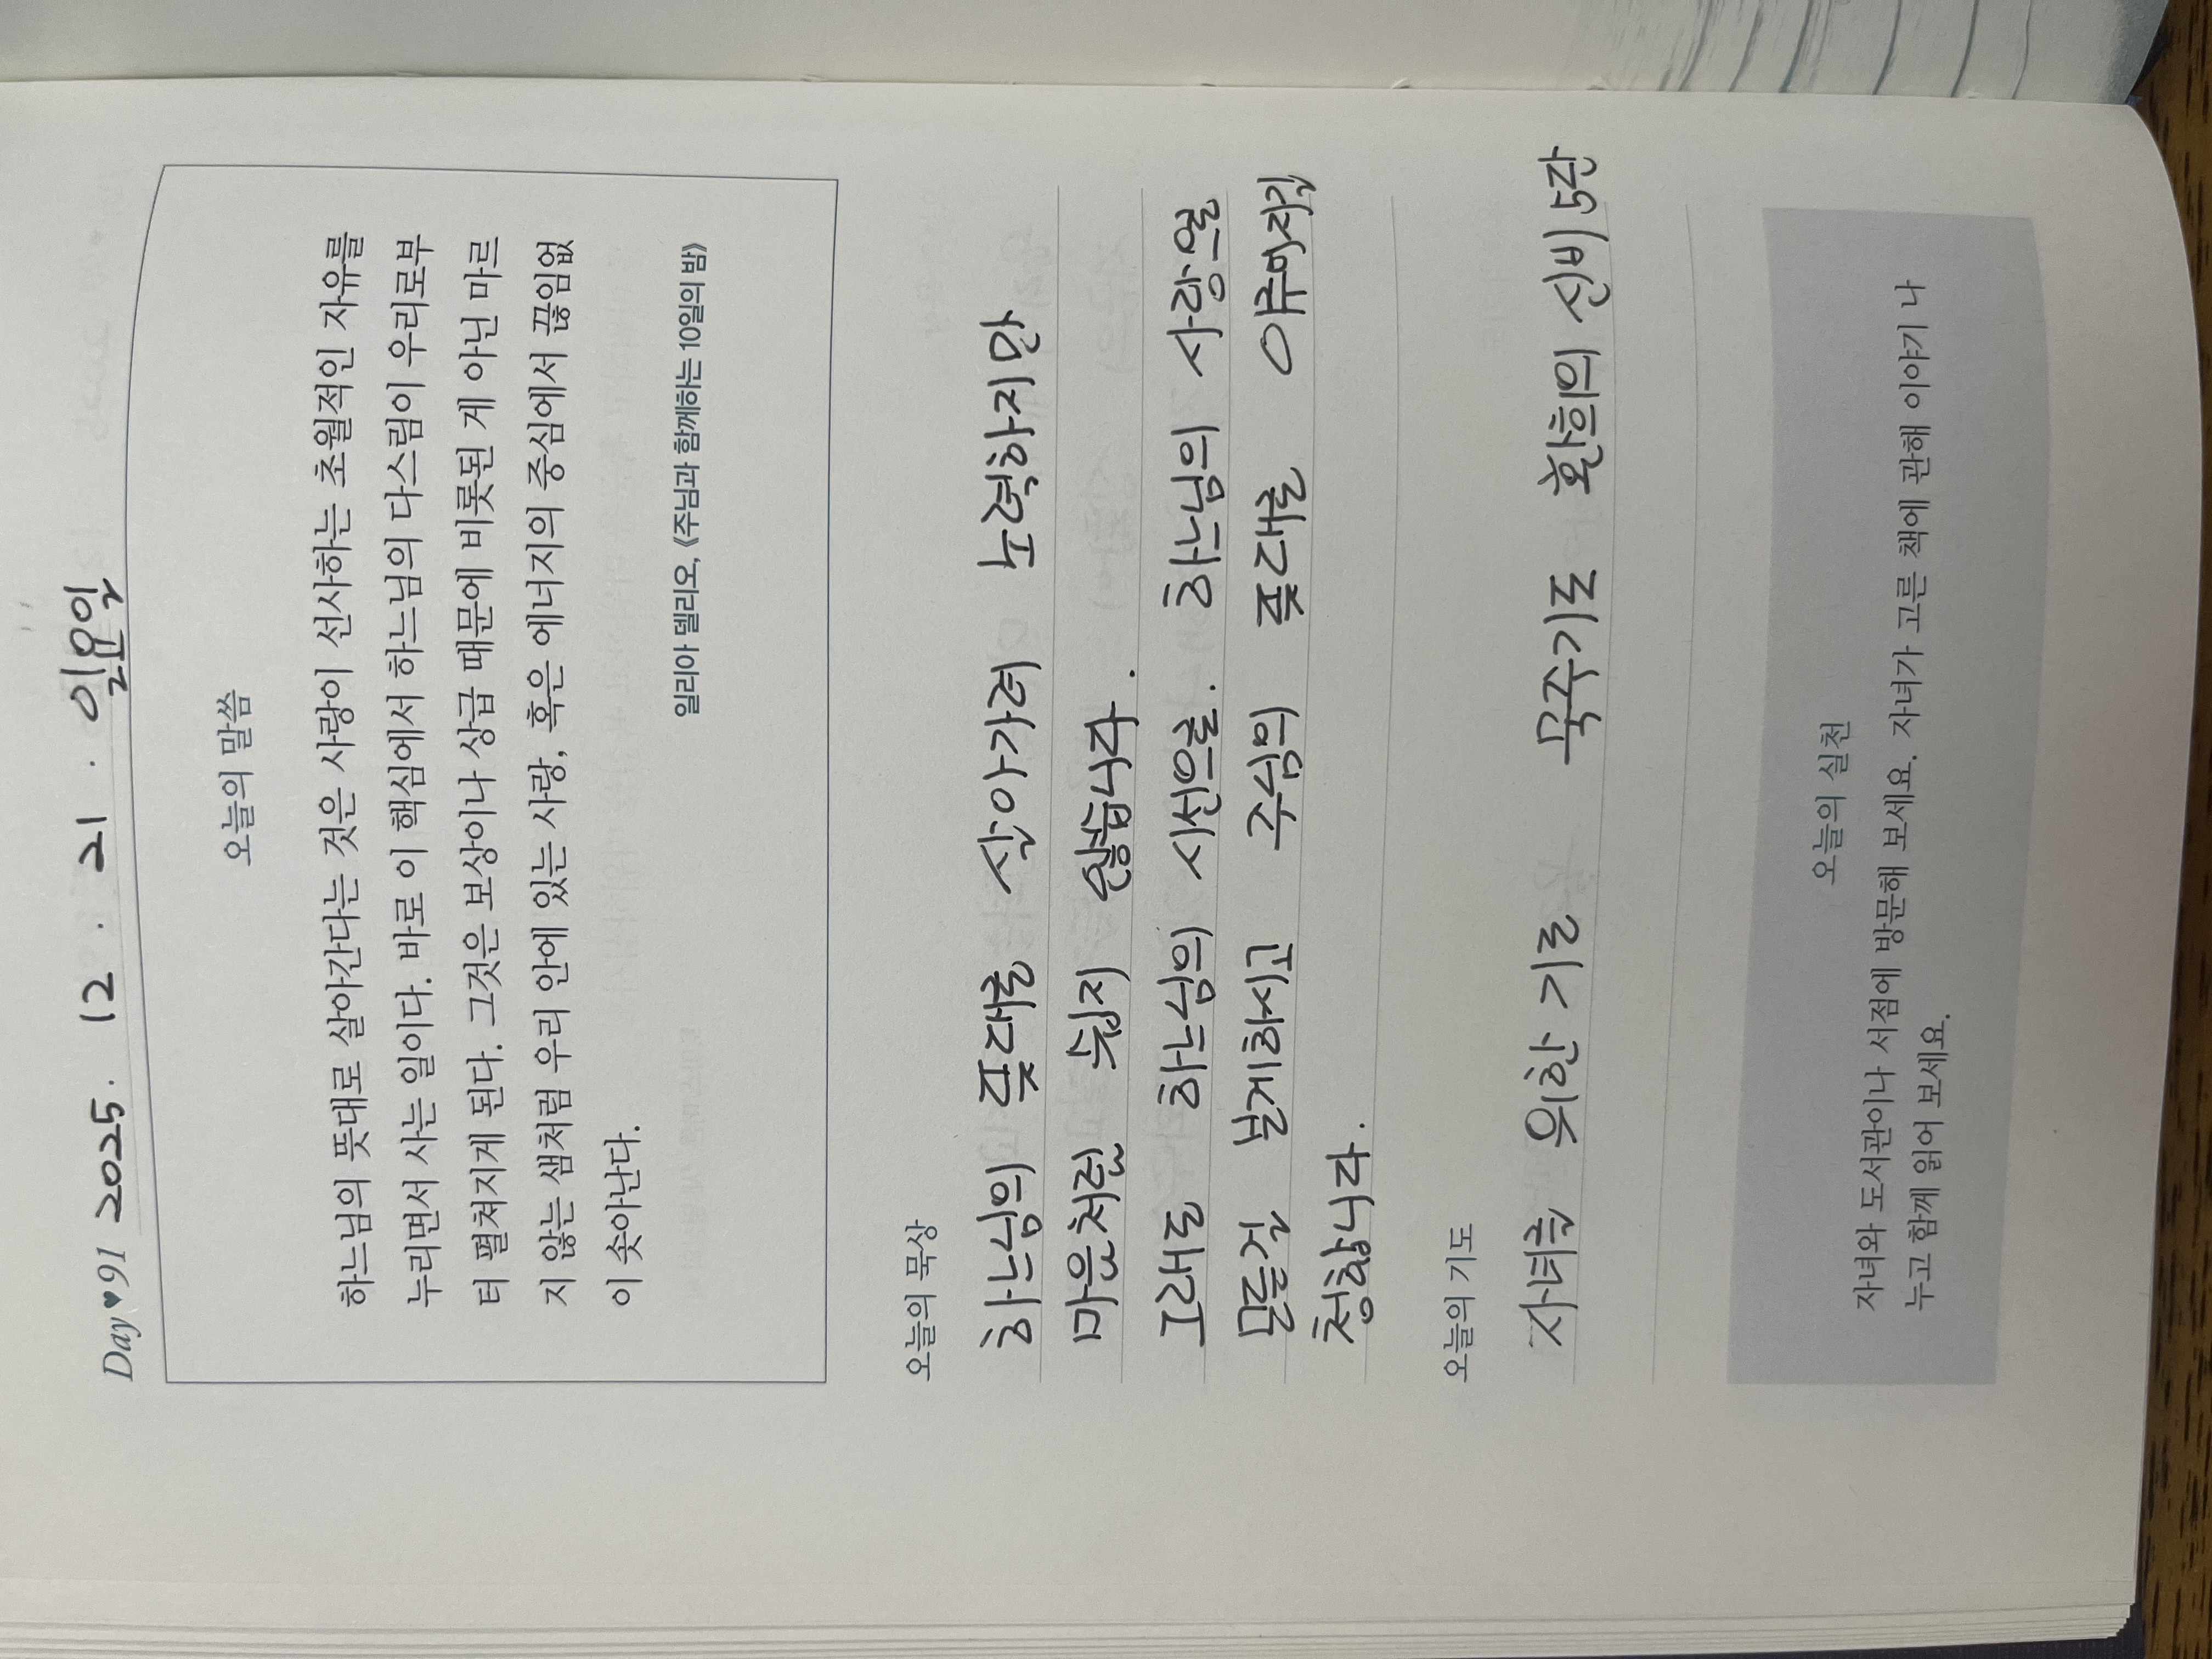 Day♥91 2025. 12. 21. 일요일
오늘의 말씀
하느님의 뜻대로 살아간다는 것은 사랑이 선사하는 초월적인 자유를
누리면서 사는 일이다. 바로 이 핵심에서 하느님의 다스림이 우리로부
터 펼쳐지게 된다. 그것은 보상이나 상급 때문에 비롯된 게 아닌 마르
지 않는 샘처럼 우리 안에 있는 사랑, 혹은 에너지의 중심에서 끊임없
이 솟아난다.
일리아 델리오, 《주님과 함께하는 10일의 밤》
오늘의 묵상
하느님의 뜻대로 살아가려 노력하지만
마음처럼 쉽지 않습니다.
그래도 하느님의 시선으로. 하느님의 사랑으로
모든걸 보게하시고 주님의 뜻대로 이루어지길
청합니다.
오늘의 기도
자녀를 위한 기도 묵주기도 환희의 신비 5단
오늘의 실천
자녀와 도서관이나 서점에 방문해 보세요. 자녀가 고른 책에 관해 이야기 나
누고 함께 읽어 보세요.